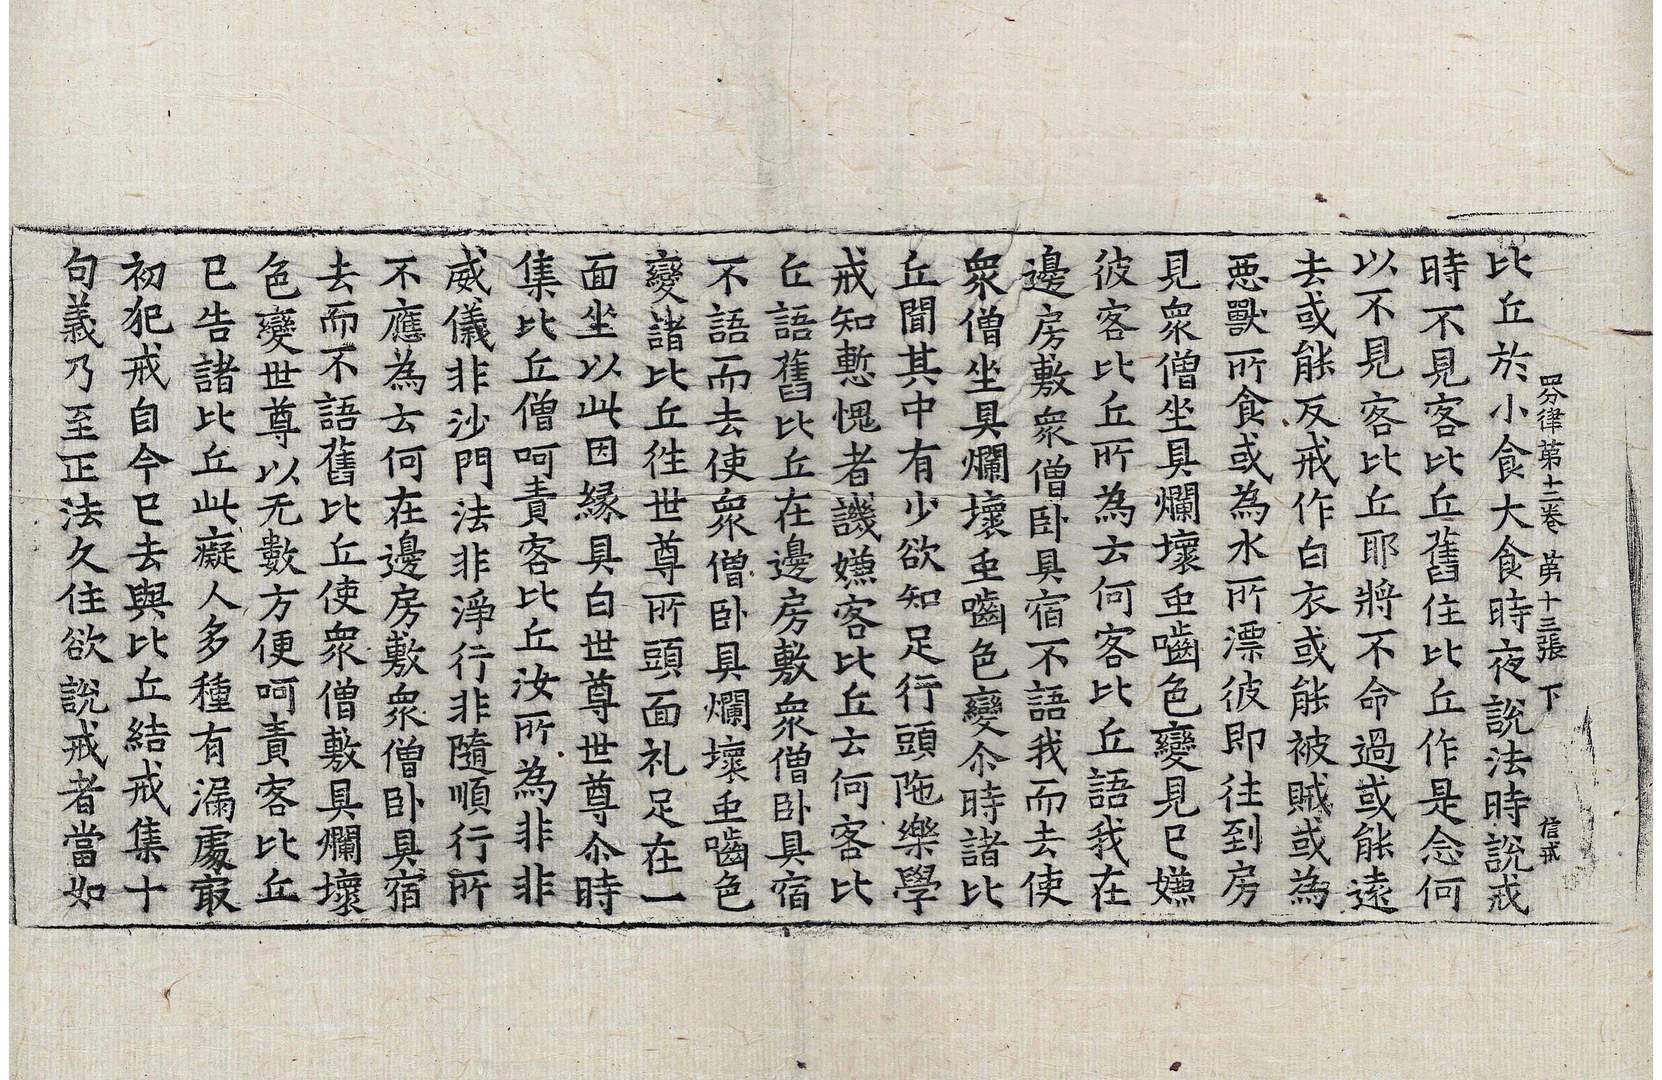 比丘於小食大食時夜說法時說戒
四分律第十二卷 第十三張 下 信戒
時不見客比丘舊住比丘作是念何
以不見客比丘耶將不命過或能遠
去或能反戒作白衣或能被賊或為
惡獸所食或為水所漂彼即往到房
見衆僧坐具爛壞虫嚙色變見已嫌
彼客比丘所為云何客比丘語我在
邊房敷衆僧卧具宿不語我而去使
衆僧坐具爛壞虫嚙色變尒時諸比
丘聞其中有少欲知足行頭陁樂學
戒知慙愧者譏嫌客比丘云何客比
丘語舊比丘在邊房敷衆僧卧具宿
不語而去使衆僧卧具爛壞虫嚙色
變諸比丘徃世尊所頭面礼足在一
面坐以此因縁具白世尊世尊尒時
集比丘僧呵責客比丘汝所為非非
威儀非沙門法非淨行非隨順行所
不應為云何在邊房敷衆僧卧具宿
去而不語舊比丘使衆僧敷具爛壞
色變世尊以无數方便呵責客比丘
已告諸比丘此癡人多種有漏處㝡
初犯戒自今已去與比丘結戒集十
句義乃至正法久住欲說戒者當如